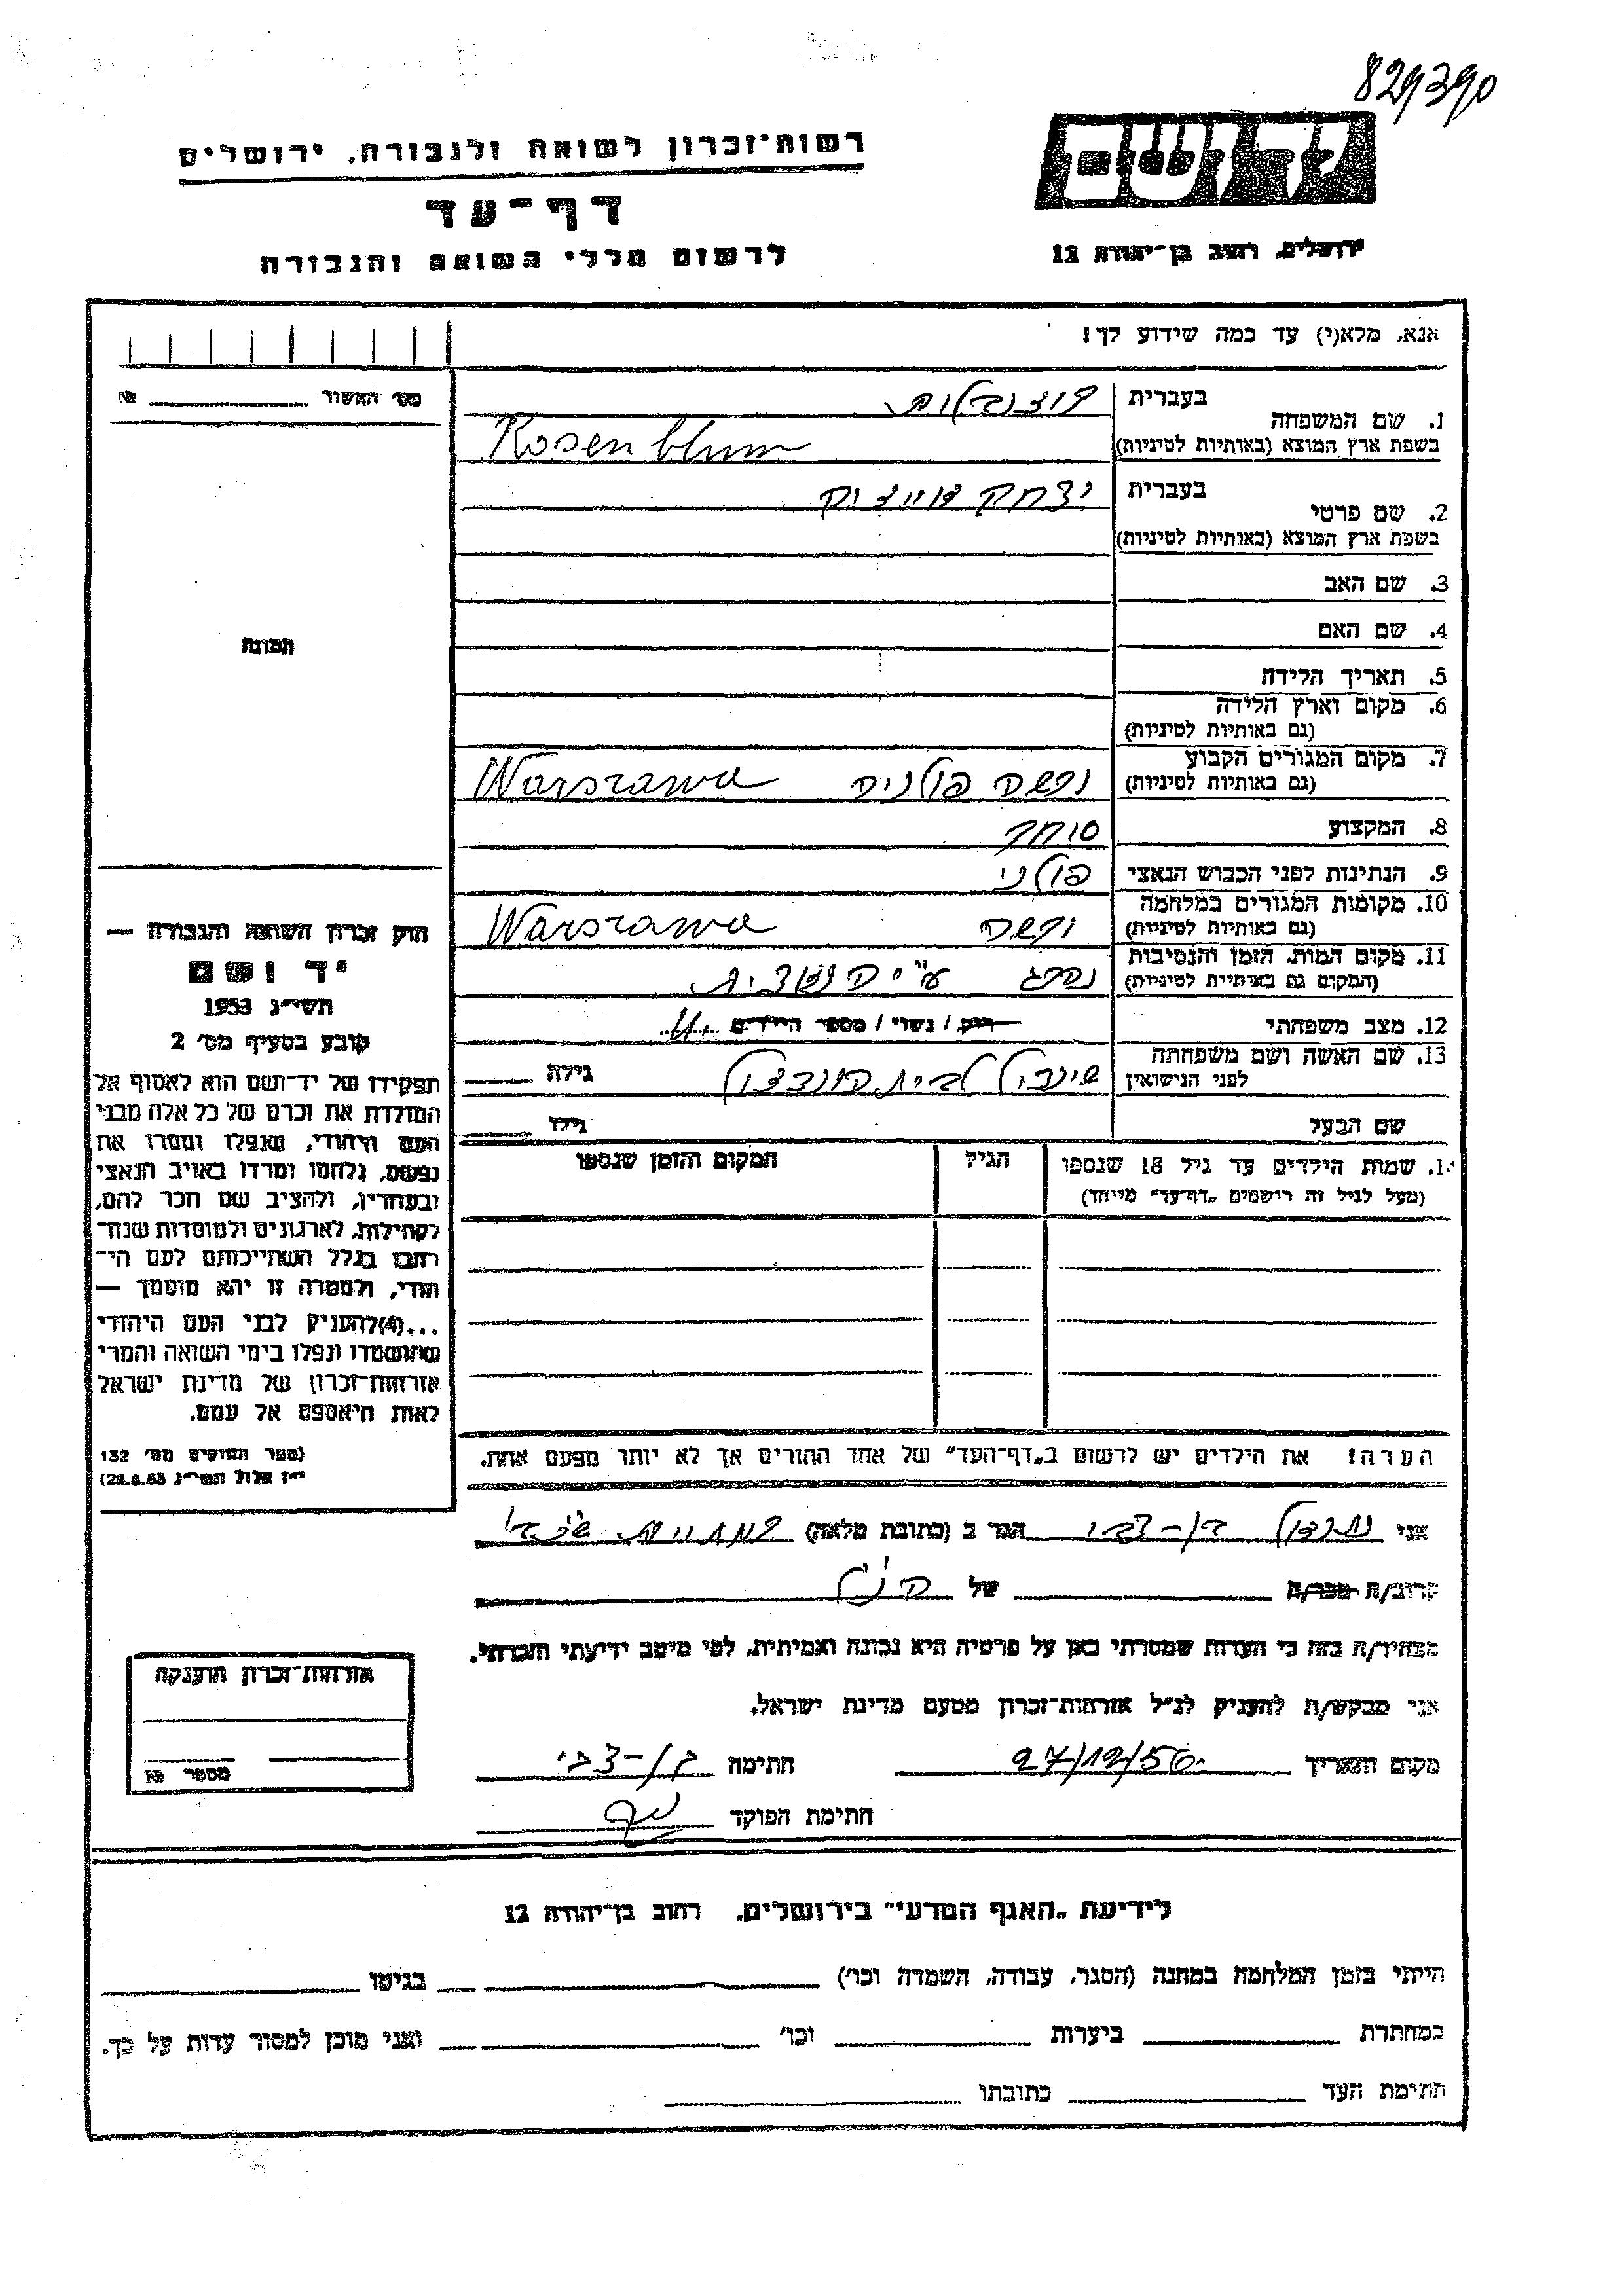 829390
רשות־זכרון לשואה ולגבורה, ירושלים
יד ושם
דף־עד
לרשום חללי השואה והגבורה
ירושלים, רחוב בן־יהודה 12
אנא, מלא(י) עד כמה שידוע לך!
מס׳ האשור № 
1. שם המשפחה
בעברית
בשפת ארץ המוצא (באותיות לטיניות) Rosenblum
2. שם פרטי
בעברית יצחק
בשפת ארץ המוצא (באותיות לטיניות)
3. שם האב
4. שם האם
תמונה
5. תאריך הלידה
6. מקום וארץ הלידה
(גם באותיות לטיניות)
7. מקום המגורים הקבוע
(גם באותיות לטיניות) ורשה פולניה Warszawa
8. המקצוע סוחר
9. הנתינות לפני הכבוש הנאצי פולני
10. מקומות המגורים במלחמה
(גם באותיות לטיניות) ורשה Warszawa
11. מקום המות, הזמן והנסיבות
(המקום גם באותיות לטיניות) נהרג ע״י הנאצים
12. מצב משפחתי רווק / נשוי / מספר הילדים
13. שם האשה ושם משפחתה
לפני הנישואין לבית גילה
שם הבעל גילו
שמות הילדים עד גיל 18 שנספו הגיל המקום והזמן שנספו
(מעל לגיל זה רושמים „דף־עד״ מיוחד)
חוק זכרון השואה והגבורה —
יד ושם
תשי״ג 1953
קובע בסעיף מס׳ 2
תפקידו של יד־ושם הוא לאסוף אל
המולדת את זכרם של כל אלה מבני
העם היהודי, שנפלו ומסרו את
נפשם, נלחמו ומרדו באויב הנאצי
ובעוזריו, ולהציב שם וזכר להם,
לקהילות, לארגונים ולמוסדות שנח־
רבו בגלל השתייכותם לעם הי־
הודי, ולמטרה זו יהא מוסמך —
...(4)להעניק לבני העם היהודי
שהושמדו ונפלו בימי השואה והמרי
אזרחות־זכרון של מדינת ישראל
לאות היאספם אל עמם.
(ספר החוקים מס׳ 132
י״ז אלול תשי״ג 28.8.53)
הערה! את הילדים יש לרשום ב„דף־העד״ של אחד ההורים אך לא יותר מפעם אחת.
אני בן-צבי הגר ב (כתובת מלאה)
קרוב/ה מכר/ה של הנ״ל
מצהיר/ה בזה כי העדות שמסרתי כאן על פרטיה היא נכונה ואמיתית, לפי מיטב ידיעתי והכרתי.
אני מבקש/ת להעניק לנ״ל אזרחות־זכרון מטעם מדינת ישראל.
מקום ותאריך 27/12/56 חתימה בן-צבי
חתימת הפוקד
אזרחות־זכרון הוענקה
מספר №
לידיעת „האגף המדעי״ בירושלים, רחוב בן־יהודה 12
הייתי בזמן המלחמה במחנה (הסגר, עבודה, השמדה וכו׳) בגיטו
במחתרת ביערות וכו׳ ואני מוכן למסור עדות על כך.
חתימת העד כתובתו